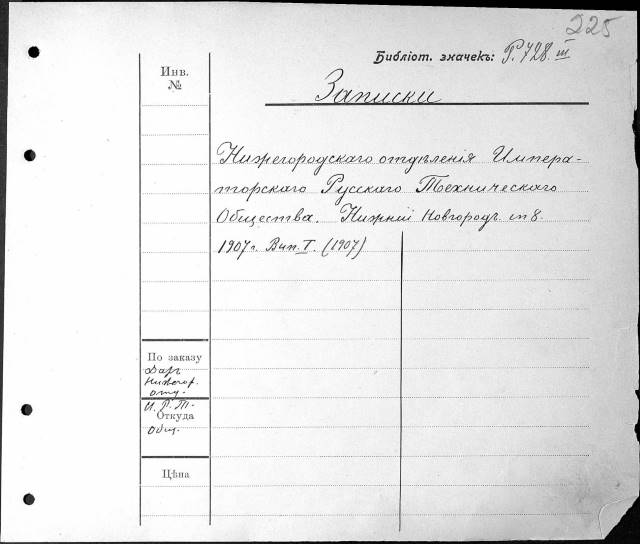 225
Библіот. значекъ: Р. 728. III
Инв.
№
Записки
Нижегородскаго отдѣленія Импера-
торскаго Русскаго Техническаго
Общества. Нижній Новгородъ in 8.
1907 г. Вып. I. (1907)
По заказу
Даръ
Нижегор.
отд.
И. Р. Т.
Откуда
Общ.
Цѣна